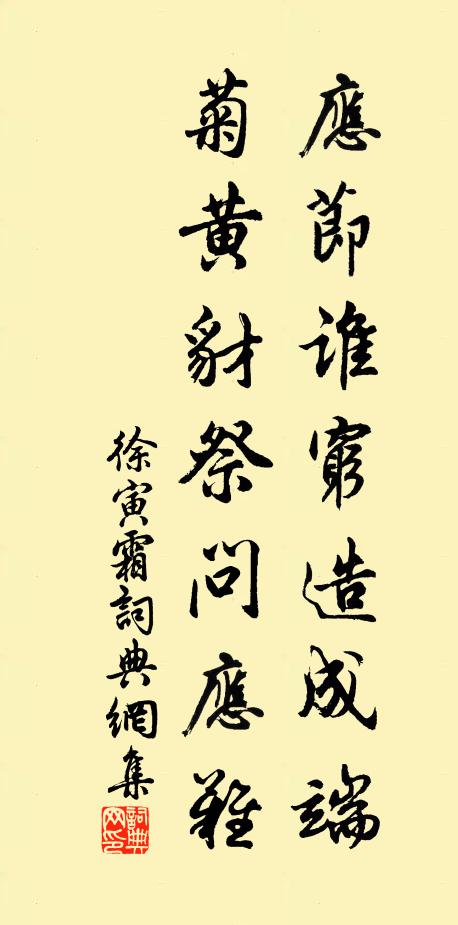 應節誰窮造成端
菊黃豺祭問應難
徐寅霜詞典網集
詞典網印